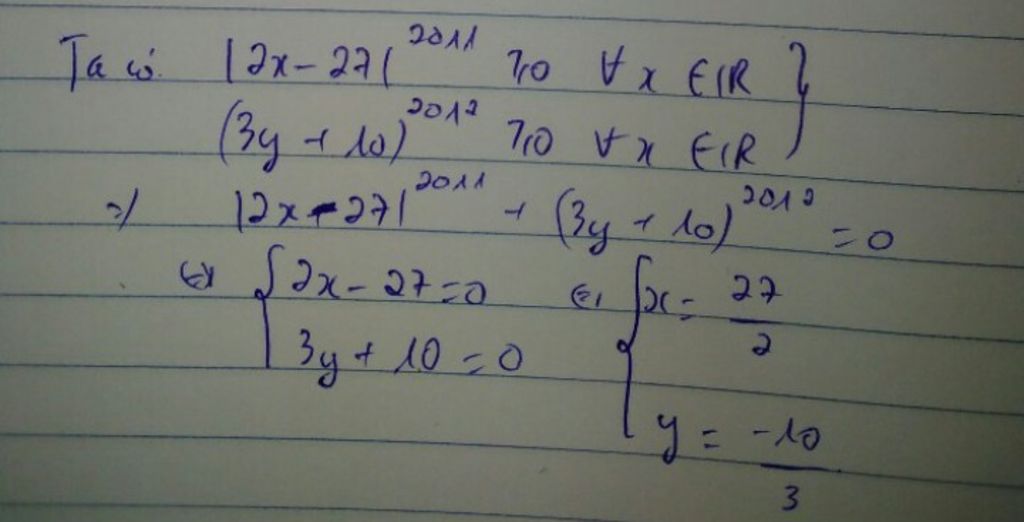 Ta có. |2x - 27|^2011 ≥ 0 ∀ x ∈ ℝ }
(3y + 10)^2012 ≥ 0 ∀ x ∈ ℝ
=) |2x - 27|^2011 + (3y + 10)^2012 = 0
⇔ { 2x - 27 = 0 ⇔ { x = 27/2
3y + 10 = 0
y = -10/3